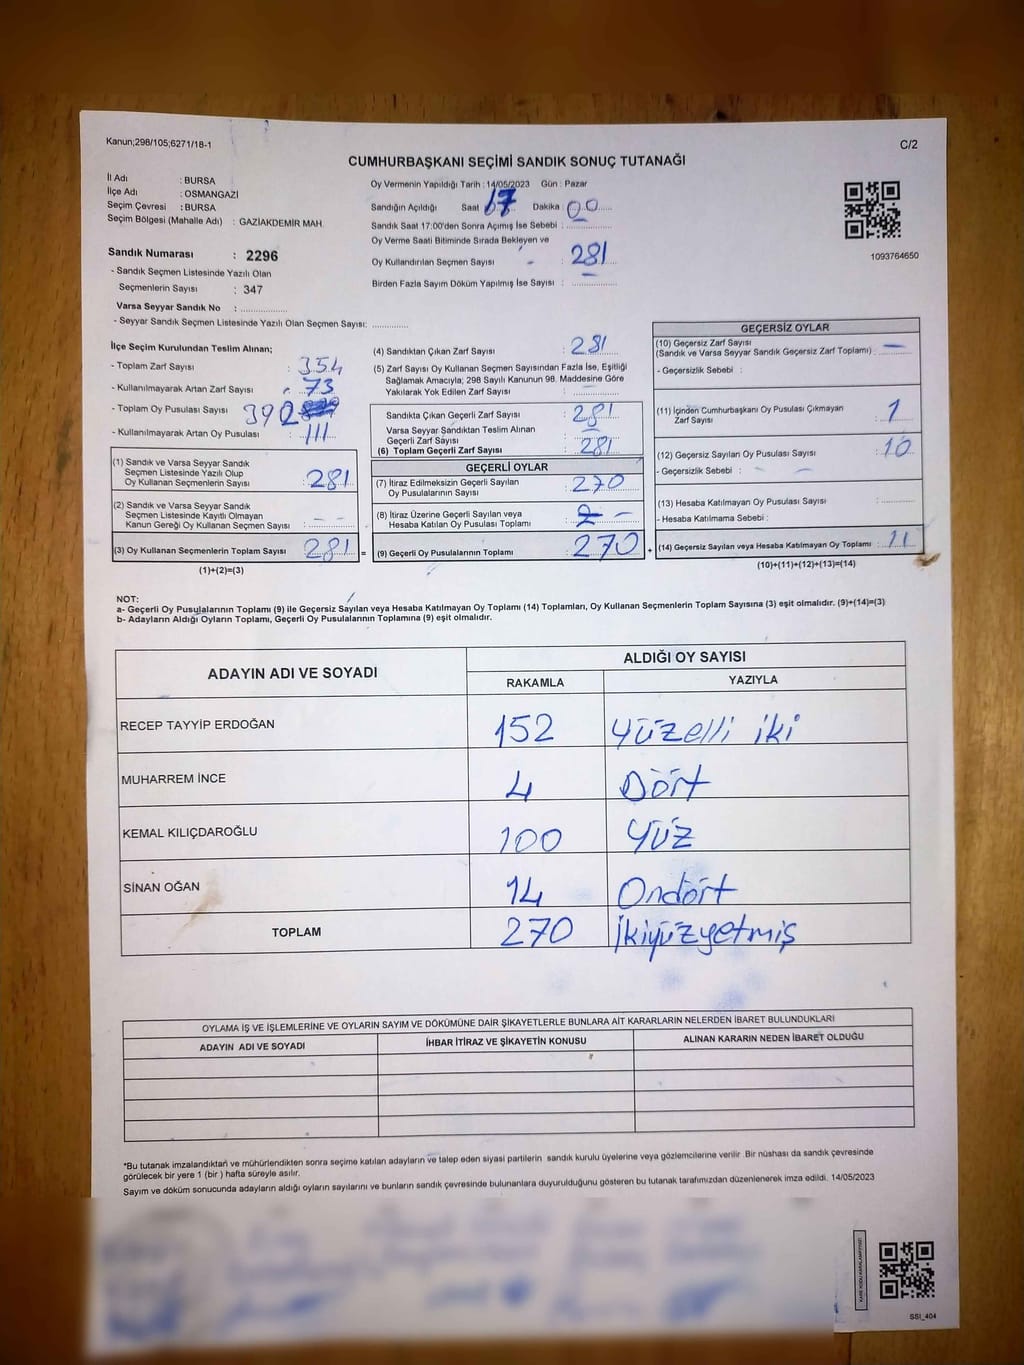 Kanun;298/105;6271/18-1
C/2
CUMHURBAŞKANI SEÇİMİ SANDIK SONUÇ TUTANAĞI
İl Adı : BURSA
İlçe Adı : OSMANGAZİ
Seçim Çevresi : BURSA
Seçim Bölgesi (Mahalle Adı) : GAZİAKDEMİR MAH.
Sandık Numarası : 2296
- Sandık Seçmen Listesinde Yazılı Olan
Seçmenlerin Sayısı : 347
Varsa Seyyar Sandık No : ................
- Seyyar Sandık Seçmen Listesinde Yazılı Olan Seçmen Sayısı: ............
Oy Vermenin Yapıldığı Tarih : 14/05/2023 Gün : Pazar
Sandığın Açıldığı Saat 17 Dakika : 00
Sandık Saat 17:00'den Sonra Açımış İse Sebebi : ................
Oy Verme Saati Bitiminde Sırada Bekleyen ve
Oy Kullandırılan Seçmen Sayısı - 281
Birden Fazla Sayım Döküm Yapılmış İse Sayısı : ................
1093764650
İlçe Seçim Kurulundan Teslim Alınan;
- Toplam Zarf Sayısı : 354
- Kullanılmayarak Artan Zarf Sayısı : 73
- Toplam Oy Pusulası Sayısı 392
- Kullanılmayarak Artan Oy Pusulası : 111
(1) Sandık ve Varsa Seyyar Sandık
Seçmen Listesinde Yazılı Olup
Oy Kullanan Seçmenlerin Sayısı : 281
(2) Sandık ve Varsa Seyyar Sandık
Seçmen Listesinde Kayıtlı Olmayan
Kanun Gereği Oy Kullanan Seçmen Sayısı : - -
(3) Oy Kullanan Seçmenlerin Toplam Sayısı : 281 =
(1)+(2)=(3)
(4) Sandıktan Çıkan Zarf Sayısı : 281
(5) Zarf Sayısı Oy Kullanan Seçmen Sayısından Fazla İse, Eşitliği
Sağlamak Amacıyla; 298 Sayılı Kanunun 98. Maddesine Göre
Yakılarak Yok Edilen Zarf Sayısı : ................
Sandıkta Çıkan Geçerli Zarf Sayısı : 281
Varsa Seyyar Sandıktan Teslim Alınan
Geçerli Zarf Sayısı : -
(6) Toplam Geçerli Zarf Sayısı : 281
GEÇERLİ OYLAR
(7) İtiraz Edilmeksizin Geçerli Sayılan
Oy Pusulalarının Sayısı : 270
(8) İtiraz Üzerine Geçerli Sayılan veya
Hesaba Katılan Oy Pusulası Toplamı : -
(9) Geçerli Oy Pusulalarının Toplamı : 270 +
GEÇERSİZ OYLAR
(10) Geçersiz Zarf Sayısı
(Sandık ve Varsa Seyyar Sandık Geçersiz Zarf Toplamı) : -
- Geçersizlik Sebebi :
(11) İçinden Cumhurbaşkanı Oy Pusulası Çıkmayan
Zarf Sayısı : 1
(12) Geçersiz Sayılan Oy Pusulası Sayısı : 10
- Geçersizlik Sebebi : - -
(13) Hesaba Katılmayan Oy Pusulası Sayısı : ............
- Hesaba Katılmama Sebebi :
(14) Geçersiz Sayılan veya Hesaba Katılmayan Oy Toplamı : 11
(10)+(11)+(12)+(13)=(14)
NOT:
a- Geçerli Oy Pusulalarının Toplamı (9) ile Geçersiz Sayılan veya Hesaba Katılmayan Oy Toplamı (14) Toplamları, Oy Kullanan Seçmenlerin Toplam Sayısına (3) eşit olmalıdır. (9)+(14)=(3)
b- Adayların Aldığı Oyların Toplamı, Geçerli Oy Pusulalarının Toplamına (9) eşit olmalıdır.
ADAYIN ADI VE SOYADI
ALDIĞI OY SAYISI
RAKAMLA YAZIYLA
RECEP TAYYİP ERDOĞAN 152 Yüzelli iki
MUHARREM İNCE 4 Dört
KEMAL KILIÇDAROĞLU 100 Yüz
SİNAN OĞAN 14 Ondört
TOPLAM 270 İkiyüzyetmiş
OYLAMA İŞ VE İŞLEMLERİNE VE OYLARIN SAYIM VE DÖKÜMÜNE DAİR ŞİKAYETLERLE BUNLARA AİT KARARLARIN NELERDEN İBARET BULUNDUKLARI
ADAYIN ADI VE SOYADI İHBAR İTİRAZ VE ŞİKAYETİN KONUSU ALINAN KARARIN NEDEN İBARET OLDUĞU
*Bu tutanak imzalandıktan ve mühürlendikten sonra seçime katılan adayların ve talep eden siyasi partilerin sandık kurulu üyelerine veya gözlemcilerine verilir. Bir nüshası da sandık çevresinde
görülecek bir yere 1 (bir ) hafta süreyle asılır.
Sayım ve döküm sonucunda adayların aldığı oyların sayılarını ve bunların sandık çevresinde bulunanlara duyurulduğunu gösteren bu tutanak tarafımızdan düzenlenerek imza edildi. 14/05/2023
SSI_404